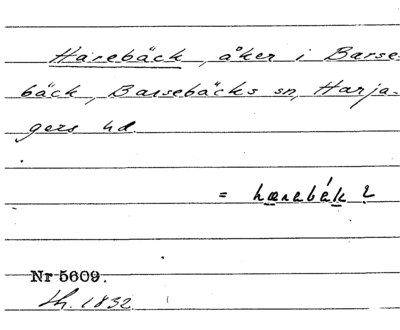 Härebäck, åker i Barse-
bäck, Barsebäcks sn, Harja-
gers hd
= hærebék ?
Nr 5609.
1832